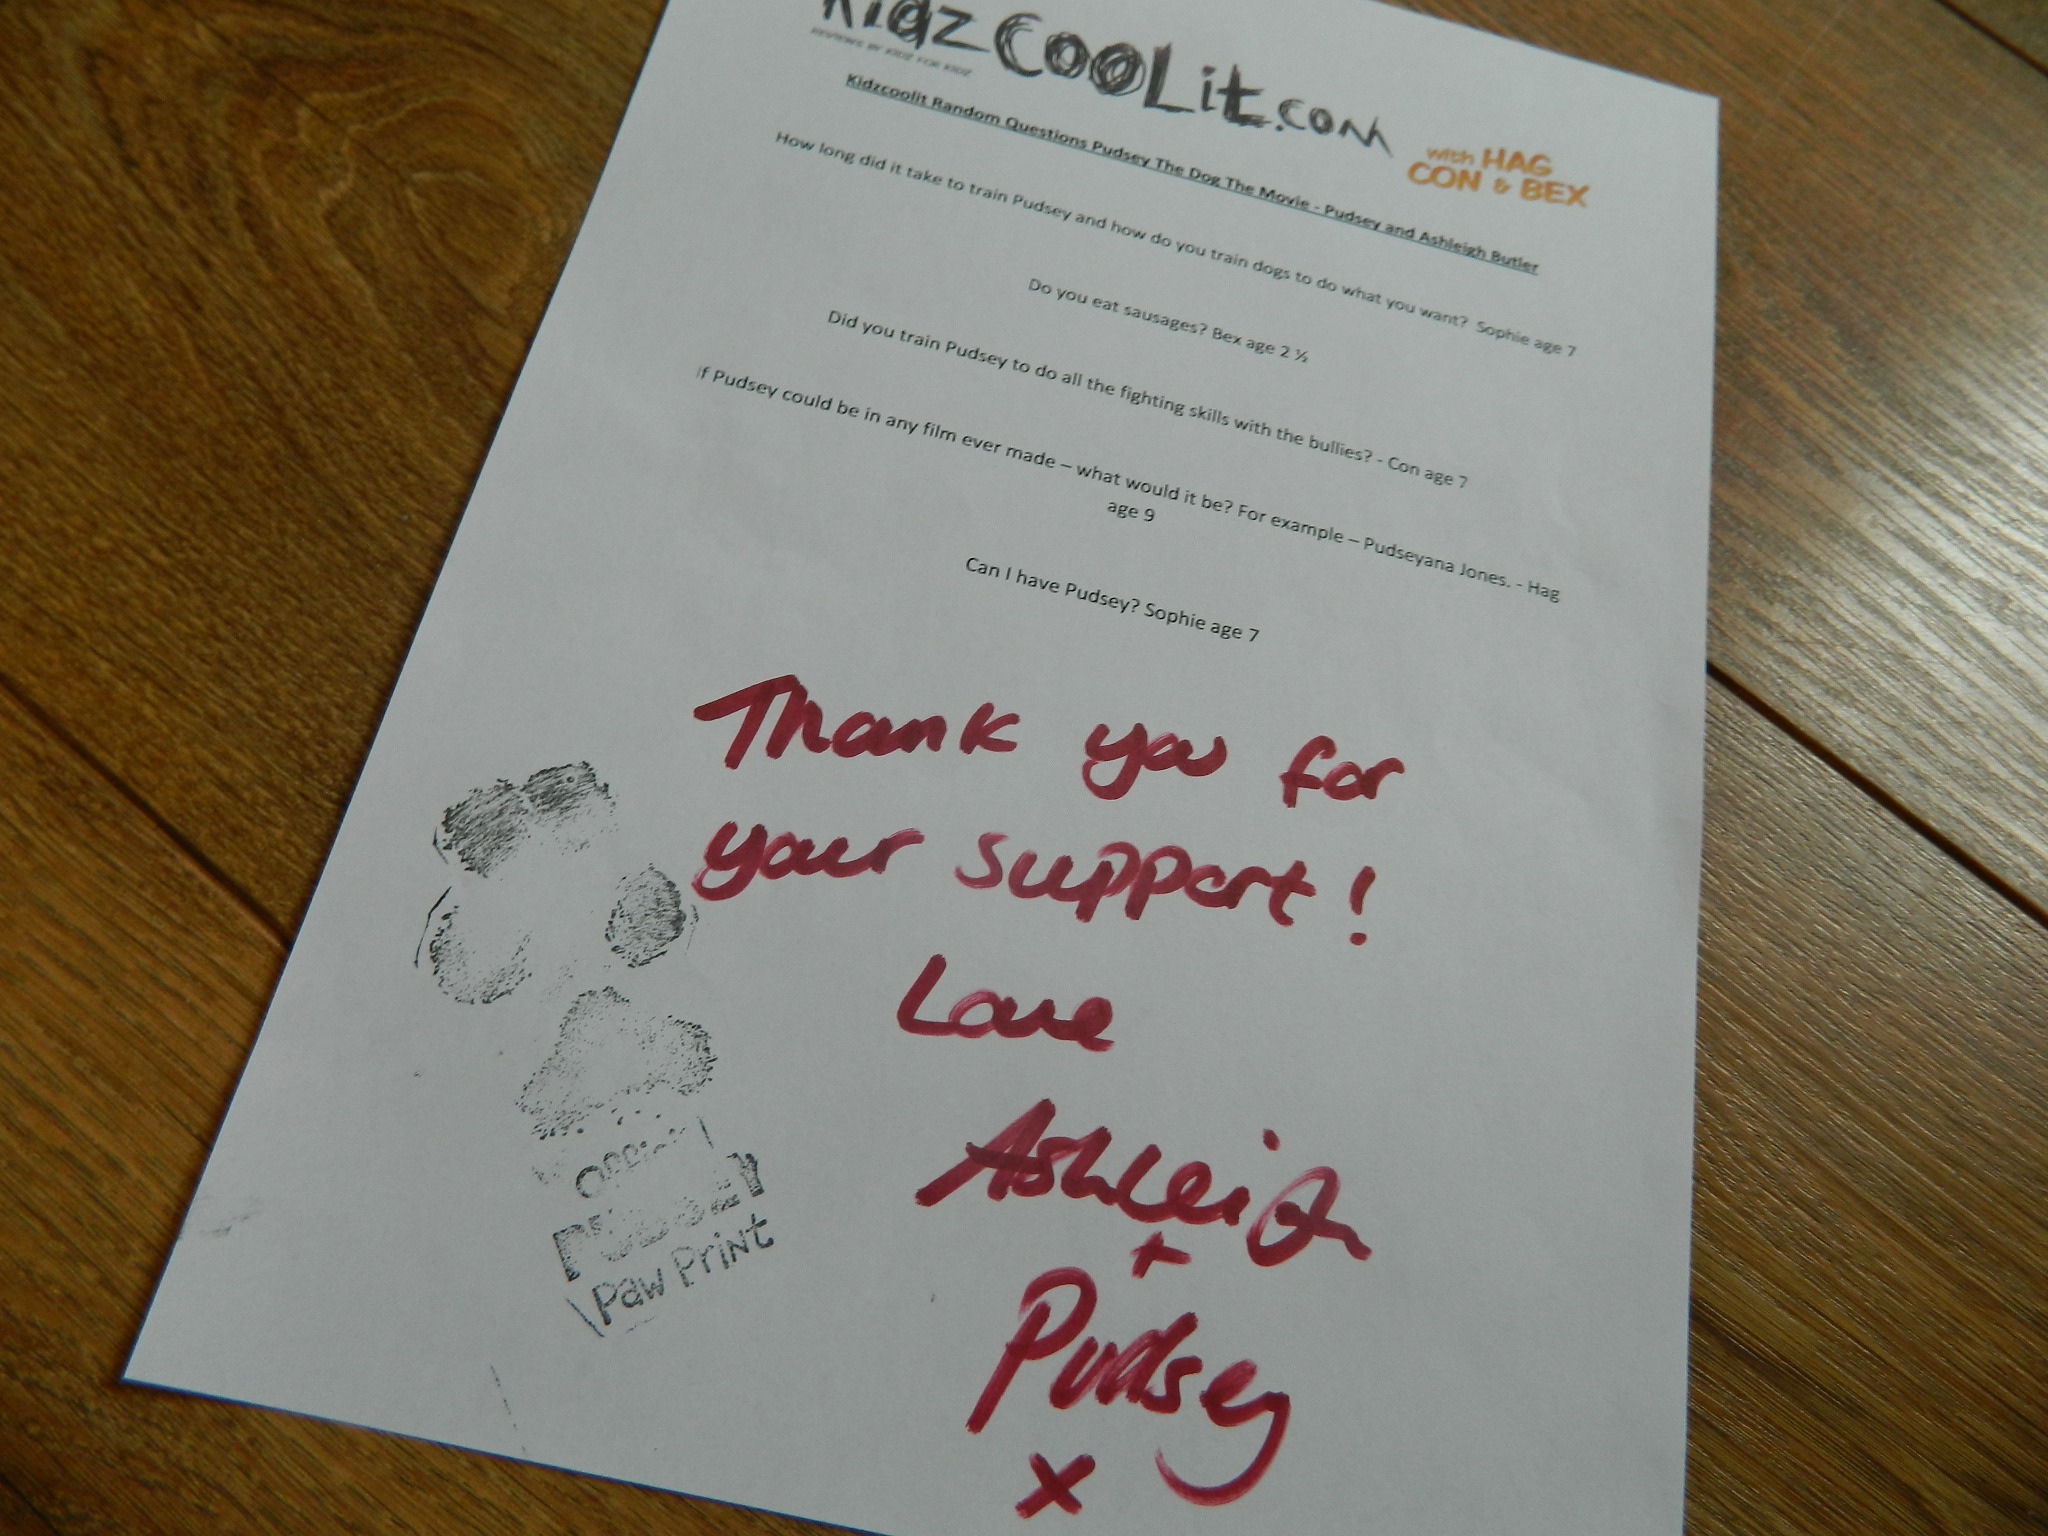 Kidz Coolit.com
REVIEWS BY KIDZ FOR KIDZ
with HAG
CON & BEX
Kidzcoolit Random Questions Pudsey The Dog The Movie - Pudsey and Ashleigh Butler
How long did it take to train Pudsey and how do you train dogs to do what you want? Sophie age 7
Do you eat sausages? Bex age 2 ½
Did you train Pudsey to do all the fighting skills with the bullies? - Con age 7
If Pudsey could be in any film ever made – what would it be? For example – Pudseyana Jones. - Hag
age 9
Can I have Pudsey? Sophie age 7
Thank you for
your support!
Love
Ashleigh
+
Pudsey
x
PUDSEY
Paw Print